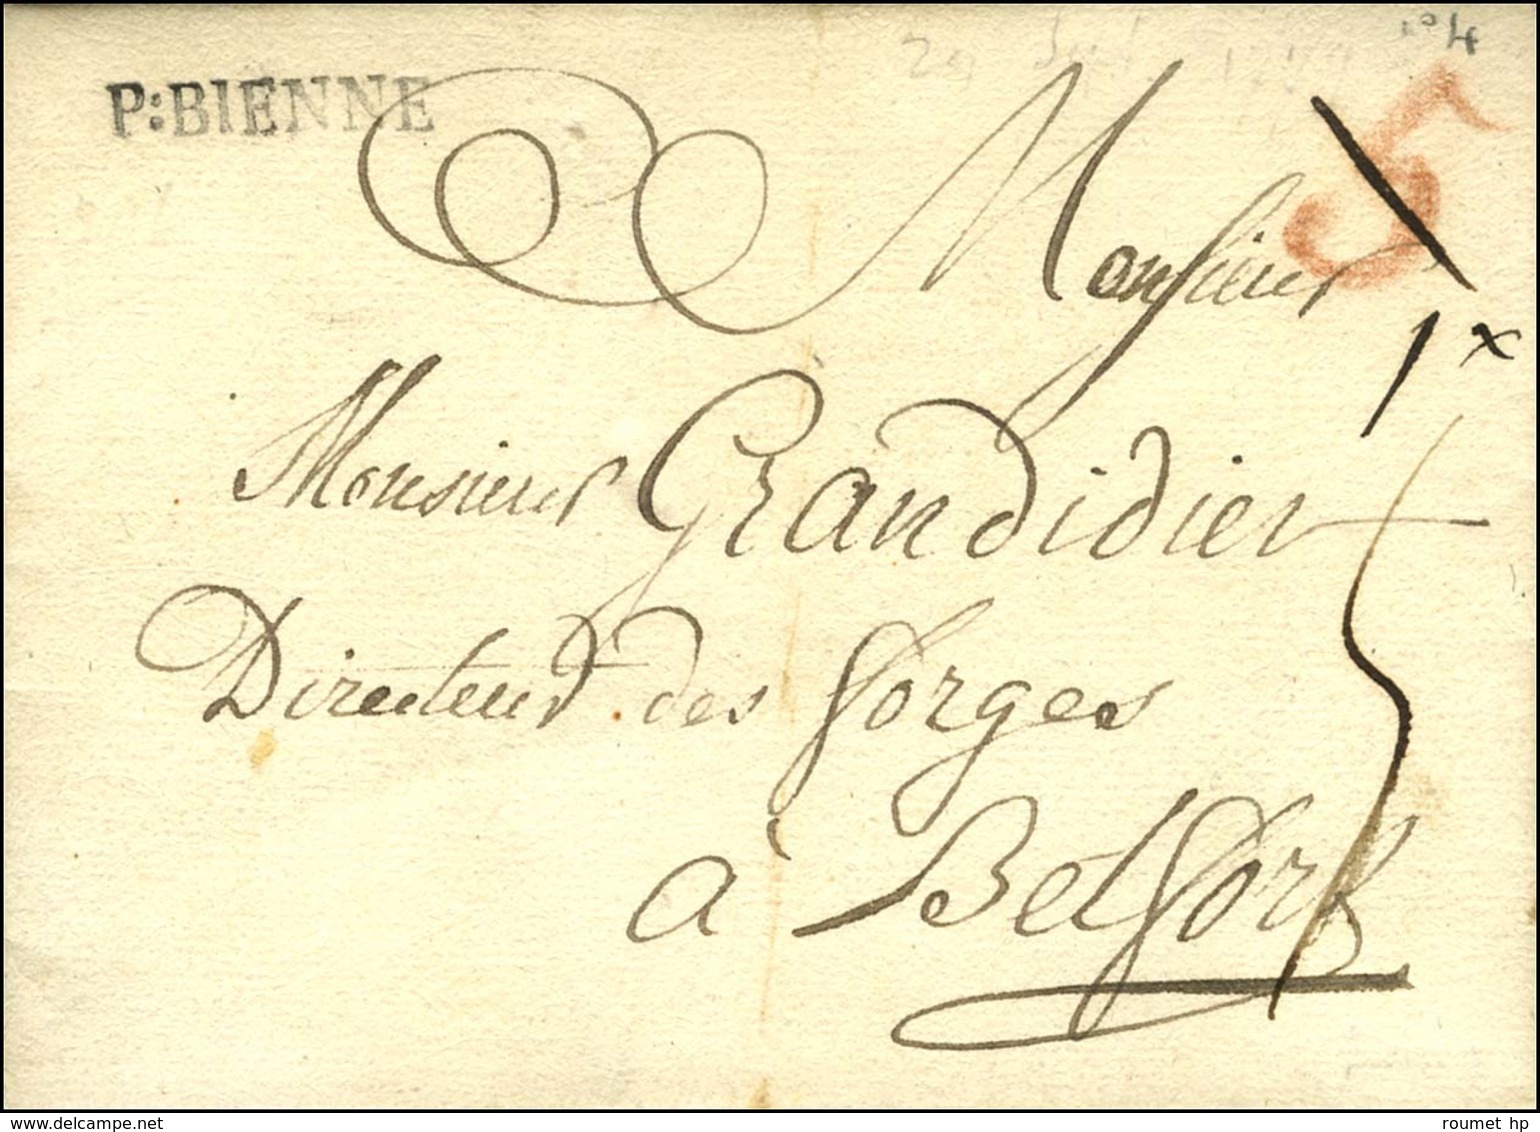 N° 4
P:BIENNE
5
Monsieur
1 x
Monsieur Grandidier
Directeur des forges
à Belfort
delcampe.net
roumet hp